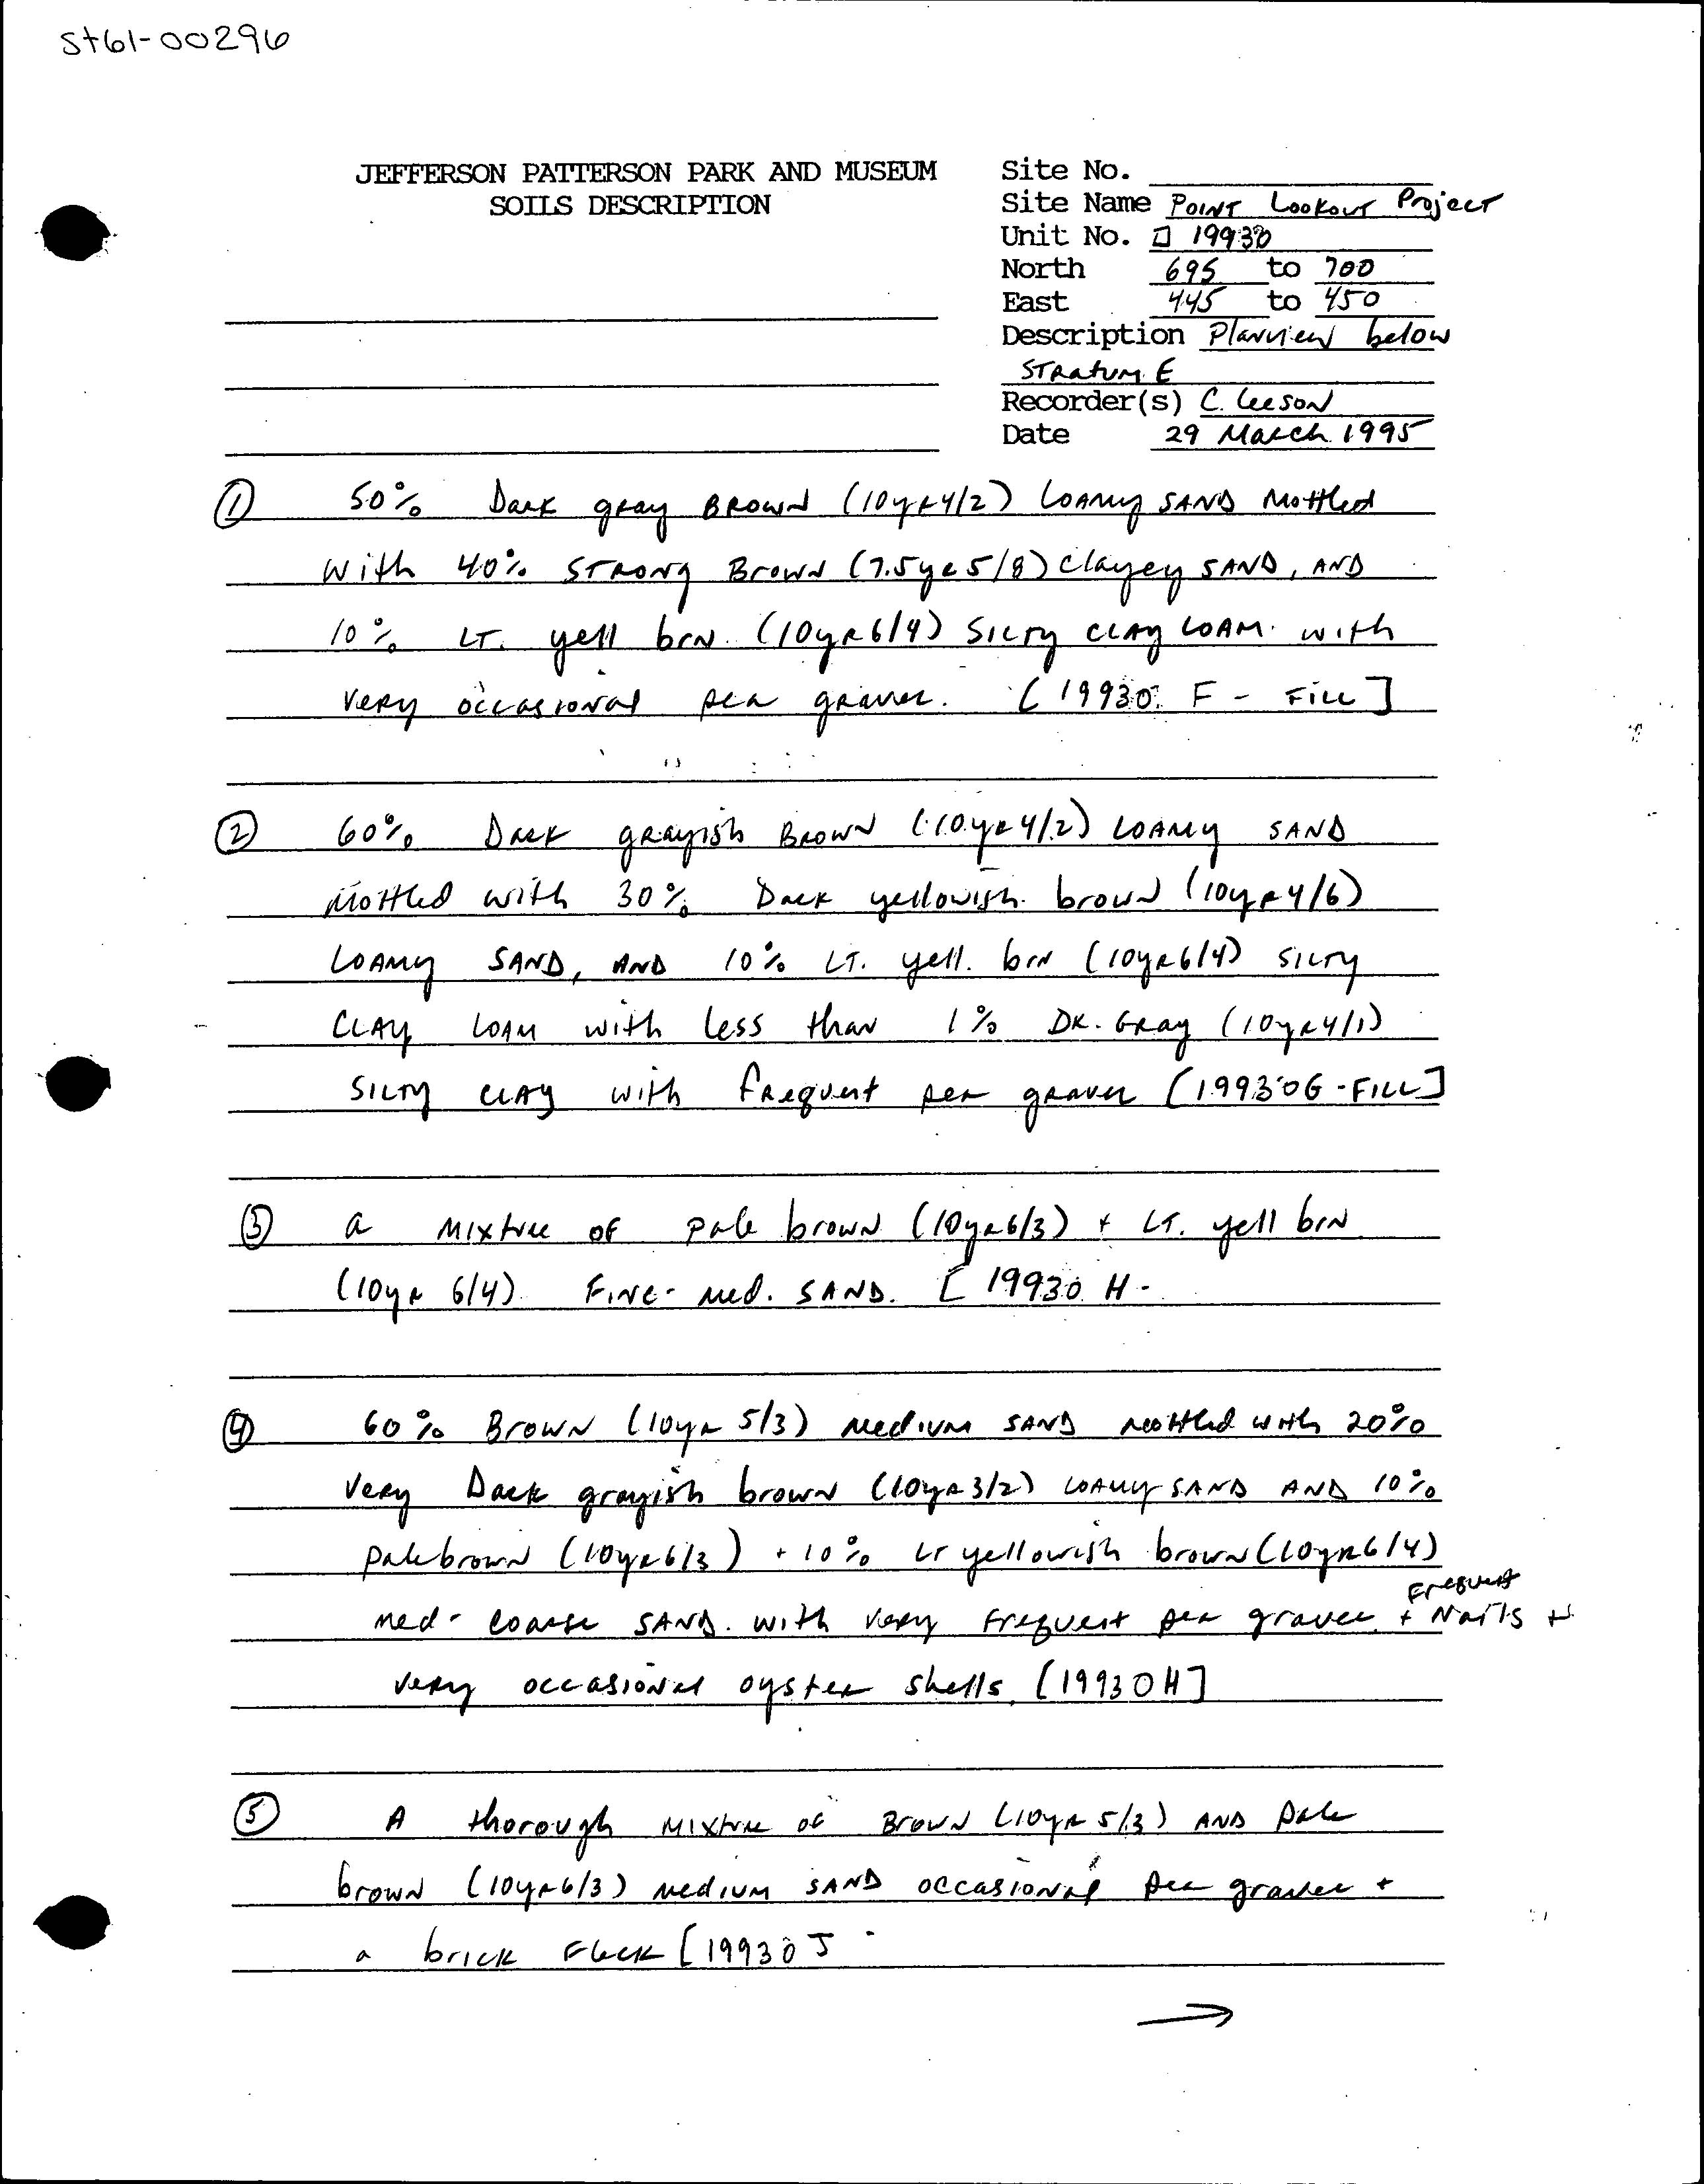 St61-00296
JEFFERSON PATTERSON PARK AND MUSEUM
SOILS DESCRIPTION
Site No.
Site Name Point Lookout Project
Unit No. 19930
North 695 to 700
East 445 to 450
Description Planview below
Stratum E
Recorder(s) C. Leeson
Date 29 March 1995
① 50% Dark gray Brown (10yr4/2) Loamy SAND Mottled
with 40% Strong Brown (7.5yr5/8) Clayey SAND, AND
10% LT. yell brn. (10yr6/4) Silty Clay Loam. with
very occasional pea gravel. [19930 F - Fill]
② 60% Dark grayish Brown (10yr4/2) Loamy SAND
Mottled with 30% Dark yellowish brown (10yr4/6)
Loamy SAND, AND 10% LT. yell. brn (10yr6/4) Silty
CLAY LOAM with less than 1% DK. Gray (10yr4/1)
Silty CLAY with frequent pea gravel [19930G - FILL]
③ a mixture of pale brown (10yr6/3) + LT. yell brn
(10yr 6/4) Fine-med. SAND. [19930 H -
④ 60% Brown (10yr 5/3) medium SAND mottled with 20%
very Dark grayish brown (10yr3/2) Loamy SAND AND 10%
pale brown (10yr6/3) + 10% LT yellowish brown (10yr6/4)
med-coarse SAND. with very frequent pea gravel + Frequent Nails +
very occasional oyster shells. [19930H]
⑤ A thorough mixture of Brown (10yr 5/3) AND pale
brown (10yr6/3) medium SAND occasional pea gravel +
a brick fleck [19930 J -
→